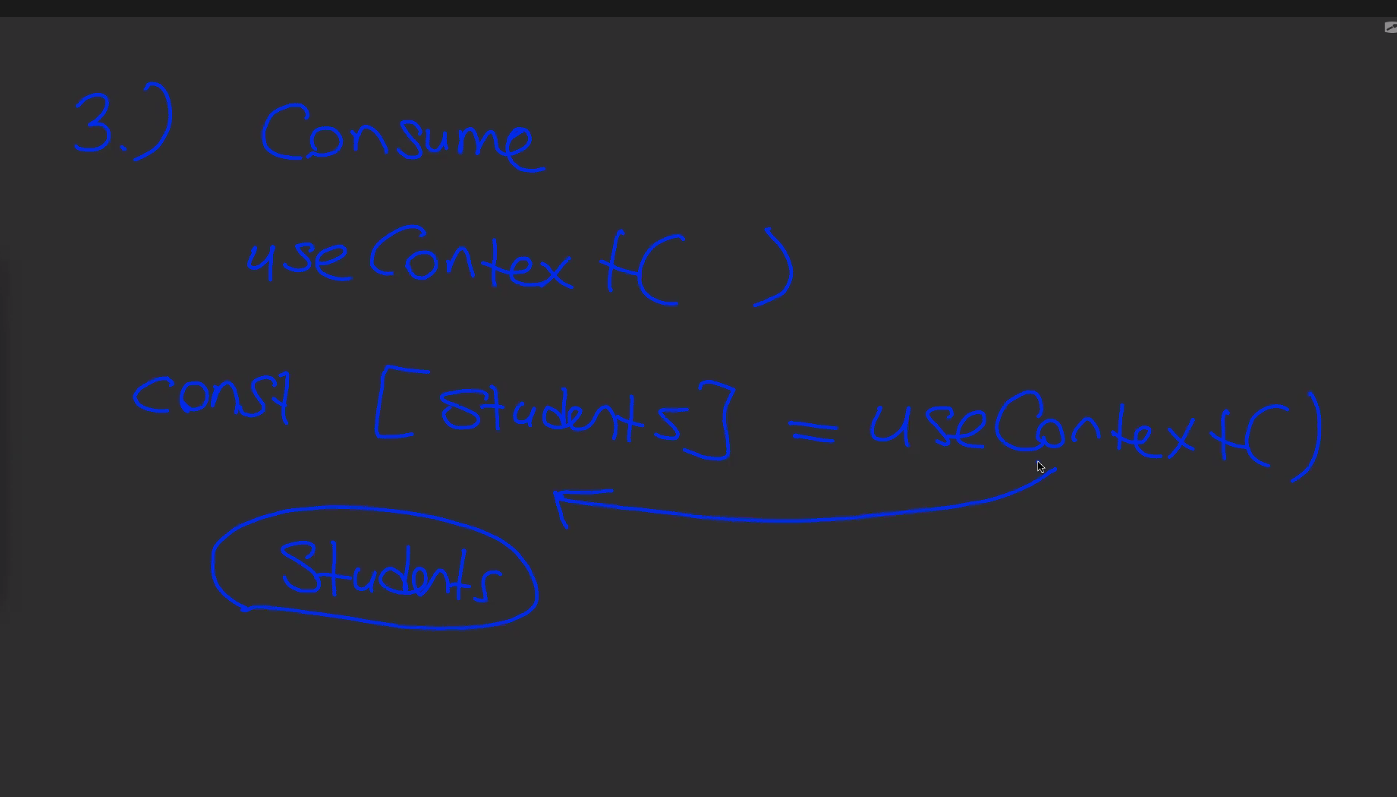 3.) Consume
useContext( )
const [Students] = useContext()
Students